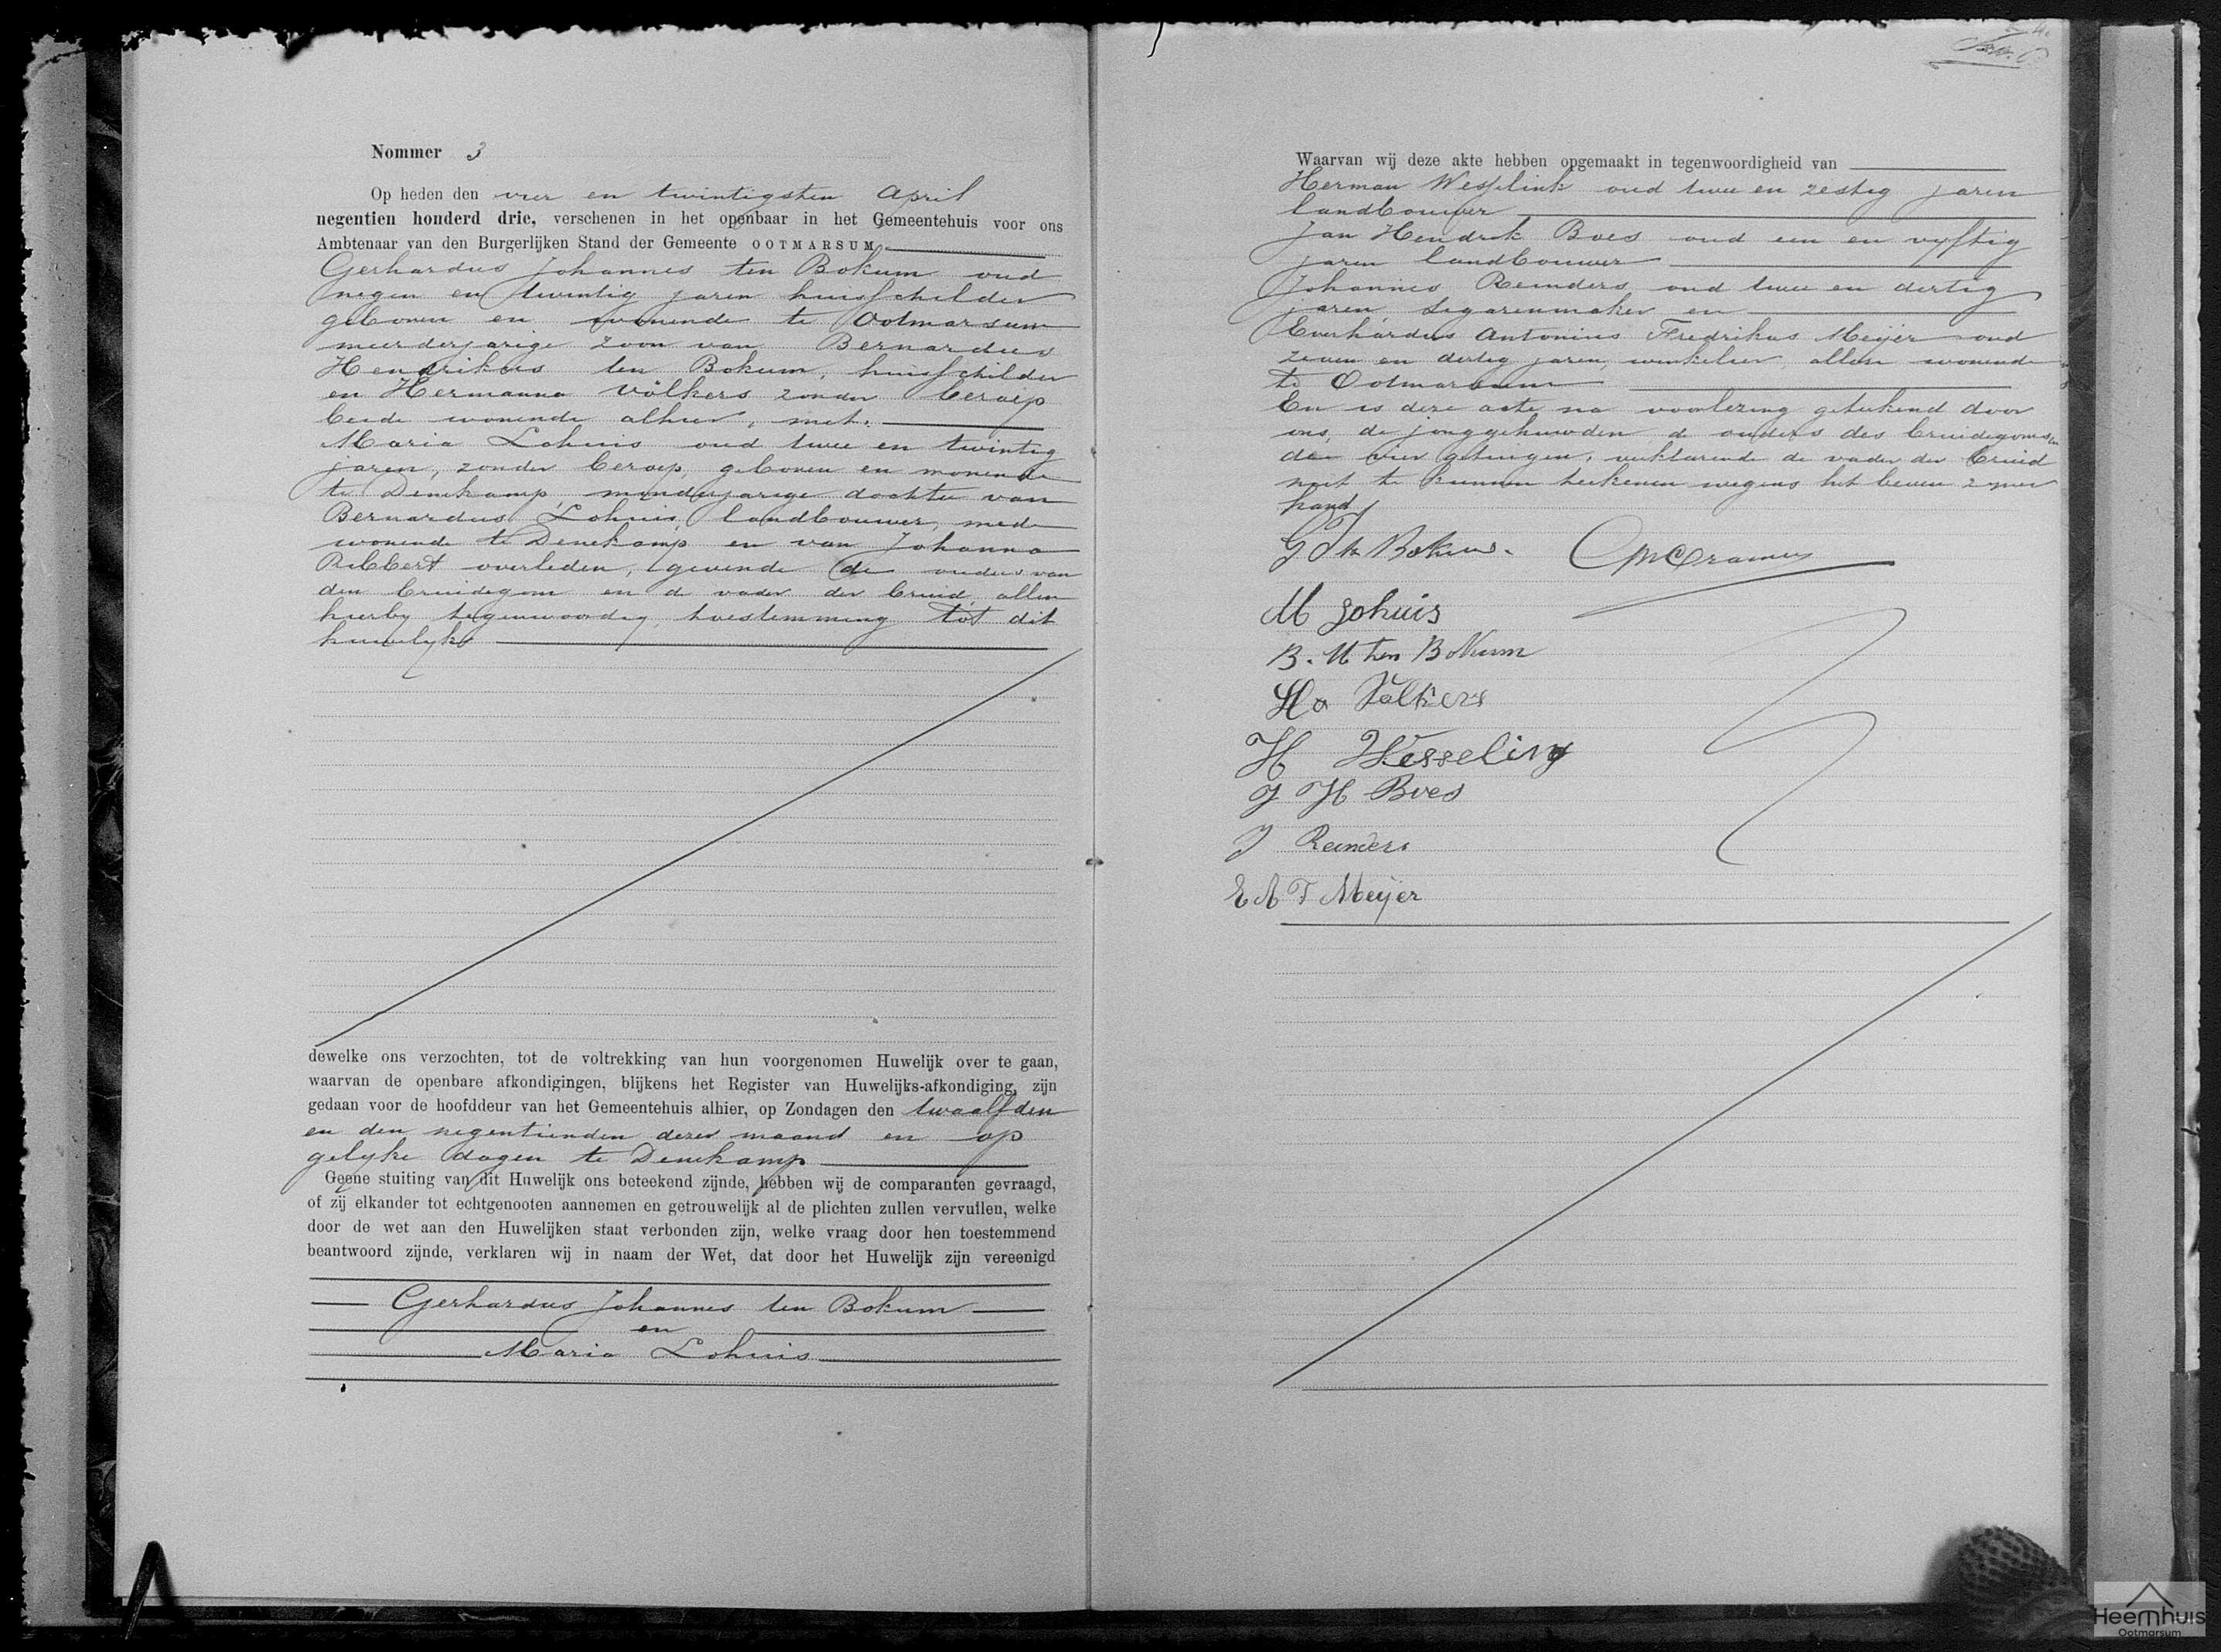 Nommer 3
Op heden den vier en twintigsten April
negentien honderd drie, verschenen in het openbaar in het Gemeentehuis voor ons
Ambtenaar van den Burgerlijken Stand der Gemeente OOTMARSUM
Gerhardus Johannes ten Bokum oud
negen en twintig jaren huisschilder
geboren en wonende te Ootmarsum
meerderjarige zoon van Bernardus
Hendrikus ten Bokum, huisschilder
en Hermanna Völkers zonder beroep
beide wonende alhier, met.
Maria Lohuis oud twee en twintig
jaren, zonder beroep, geboren en wonende
te Denekamp, minderjarige dochter van
Bernardus Lohuis, landbouwer, mede
wonende te Denekamp en van Johanna
Ribbert overleden, gevende de ouders van
den bruidegom en de vader der bruid, allen
hierby tegenwoordig toestemming tot dit
huwelyk
dewelke ons verzochten, tot de voltrekking van hun voorgenomen Huwelijk over te gaan,
waarvan de openbare afkondigingen, blijkens het Register van Huwelijks-afkondiging, zijn
gedaan voor de hoofddeur van het Gemeentehuis alhier, op Zondagen den twaalfden
en den negentienden dezer maand en op
gelyke dagen te Denekamp
Geene stuiting van dit Huwelijk ons beteekend zijnde, hebben wij de comparanten gevraagd,
of zij elkander tot echtgenooten aannemen en getrouwelijk al de plichten zullen vervullen, welke
door de wet aan den Huwelijken staat verbonden zijn, welke vraag door hen toestemmend
beantwoord zijnde, verklaren wij in naam der Wet, dat door het Huwelijk zijn vereenigd
Gerhardus Johannes ten Bokum
en
Maria Lohuis
Waarvan wij deze akte hebben opgemaakt in tegenwoordigheid van
Herman Wesselink oud twee en zestig jaren
landbouwer
Jan Hendrik Boes oud een en vyftig
jaren landbouwer
Johannes Reinders oud twee en dertig
jaren, sigarenmaker en
Everhardus Antonius Fredrikus Meijer oud
zeven en dertig jaren, winkelier, allen wonende
te Ootmarsum
En is deze acte na voorlezing geteekend door
ons, de jonggehuwden de ouders des bruidegoms en
de vier getuigen, verklarende de vader der bruid
niet te kunnen teekenen wegens het beven zyner
hand
G J ten Bokum. Cramer
M Lohuis
B. H ten Bokum
Ha Völkers
H Wesseling
J H Boes
J Reinders
E A F Meijer
Heemhuis
Ootmarsum